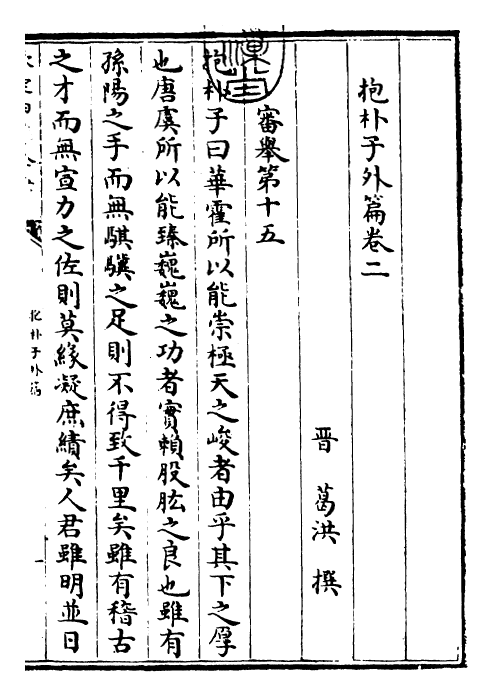 抱朴子外篇卷二
晉 葛洪 撰
審舉第十五
抱朴子曰華霍所以能崇極天之峻者由乎其下之厚
也唐虞所以能臻巍巍之功者實賴股肱之良也雖有
孫陽之手而無騏驥之足則不得致千里矣雖有稽古
之才而無宣力之佐則莫緣凝庶績矣人君雖明並日
抱朴子外篇